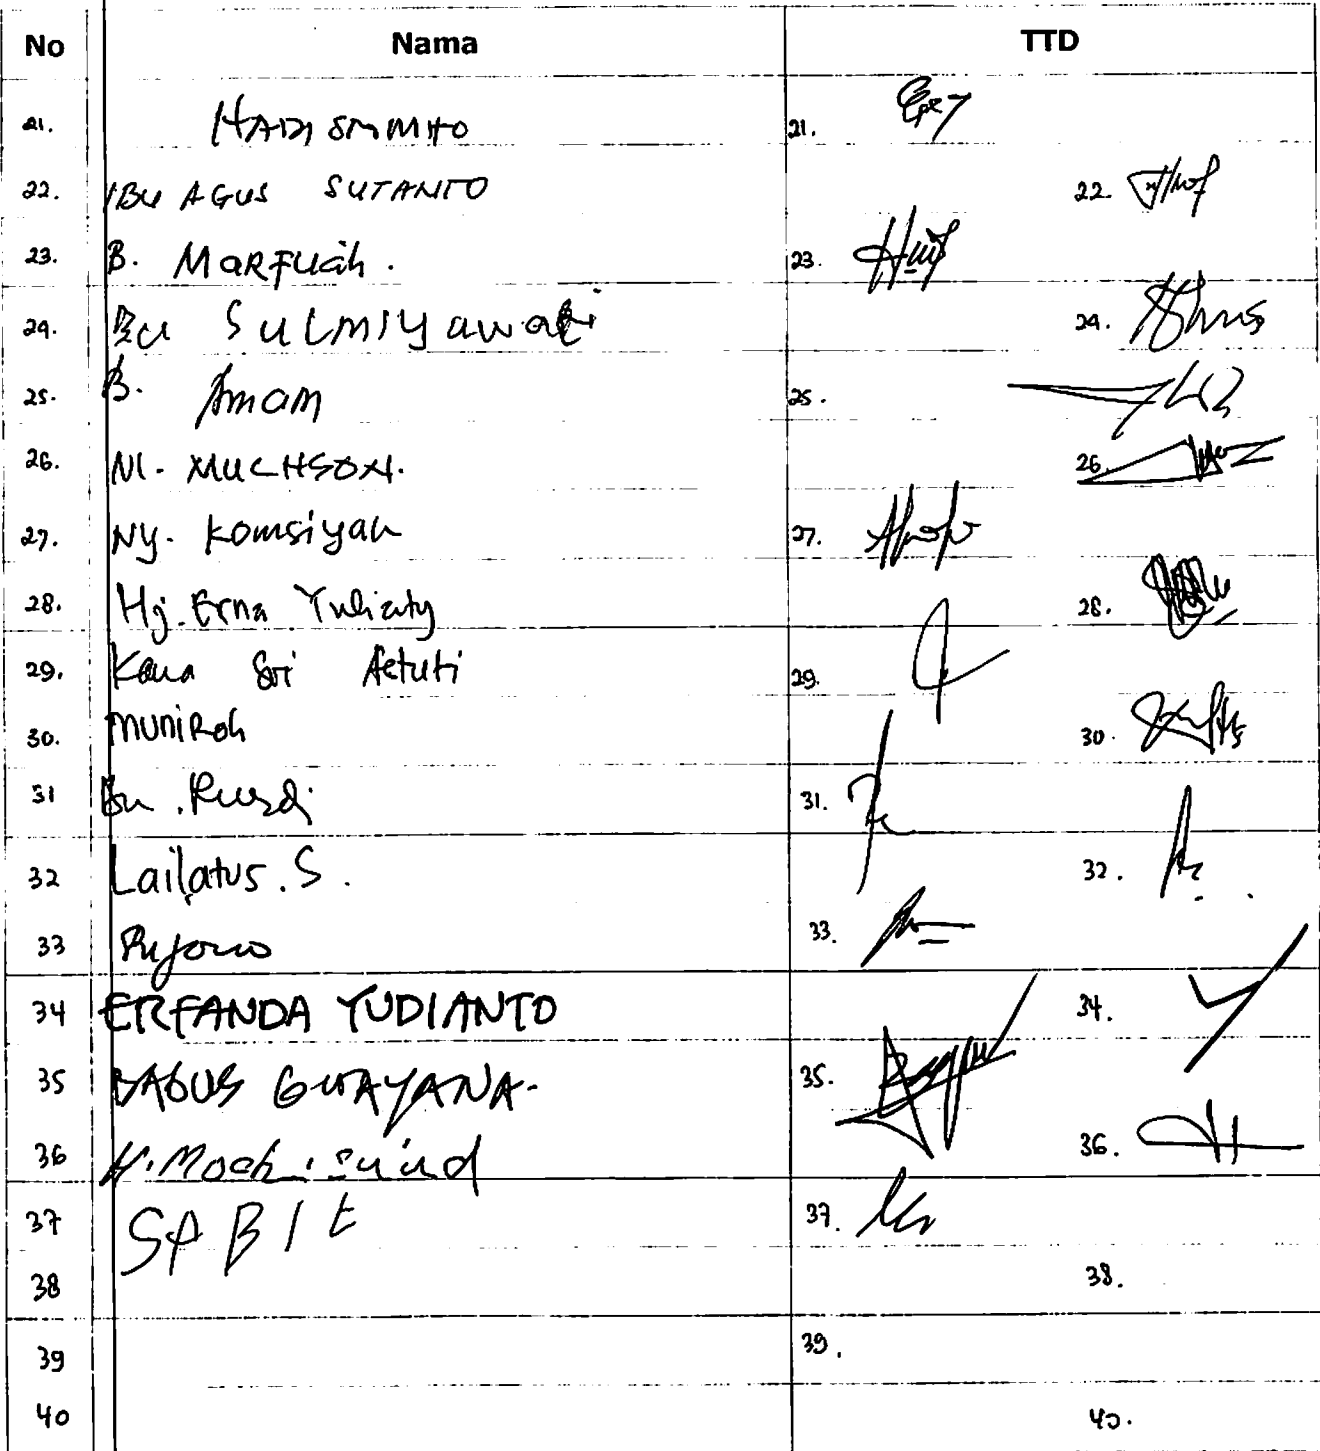 No Nama TTD
21. HADI 21.
22. IBU AGUS SUTANTO 22.
23. B. MARFUah. 23.
24. Bu SULMIYawati 24.
25. B. Amam 25.
26. NI. MUCHSON. 26.
27. Ny. Komsiyah 27.
28. Hj. Erna Yuliaty 28.
29. Sri Astuti 29.
30. MUNIROh 30.
31 Bu. Rusdi 31.
32 Lailatus. S. 32.
33 Pujono 33.
34 ERFANDA YUDIANTO 34.
35 BAGUS GUNAYANA. 35.
36 H. Moch. 36.
37 SABIt 37.
38 38.
39 39.
40 40.